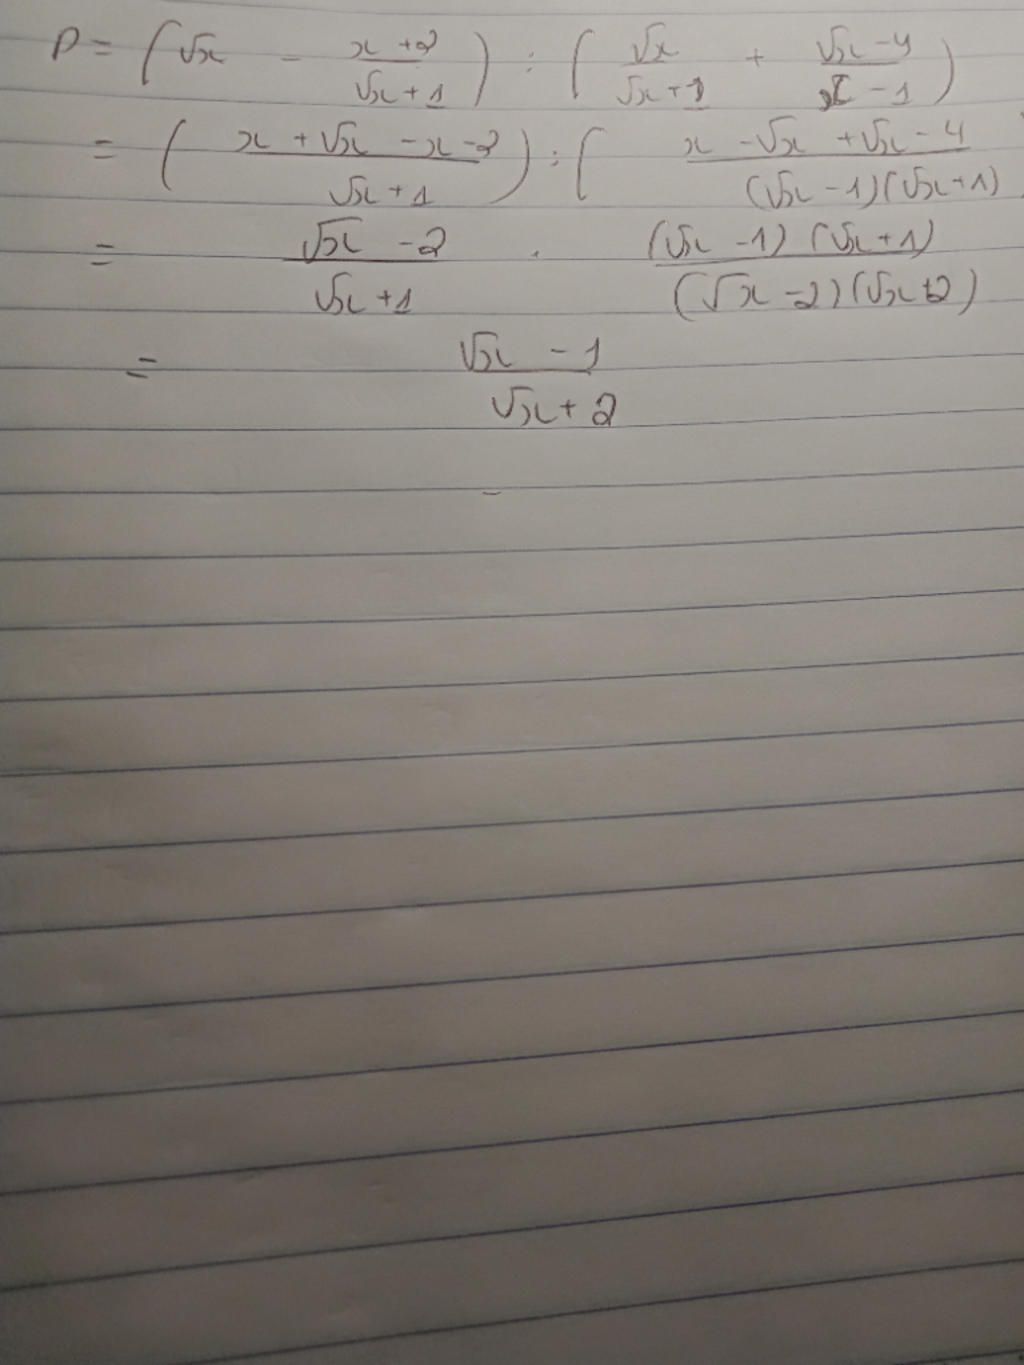 P = (√x - (x+2)/(√x+1)) : (√x/(√x+1) + (√x-4)/(x-1))
= ((x+√x-x-2)/(√x+1)) : ((x-√x+√x-4)/((√x-1)(√x+1))
= (√x-2)/(√x+1) . ((√x-1)(√x+1))/((√x-2)(√x+2))
= (√x-1)/(√x+2)